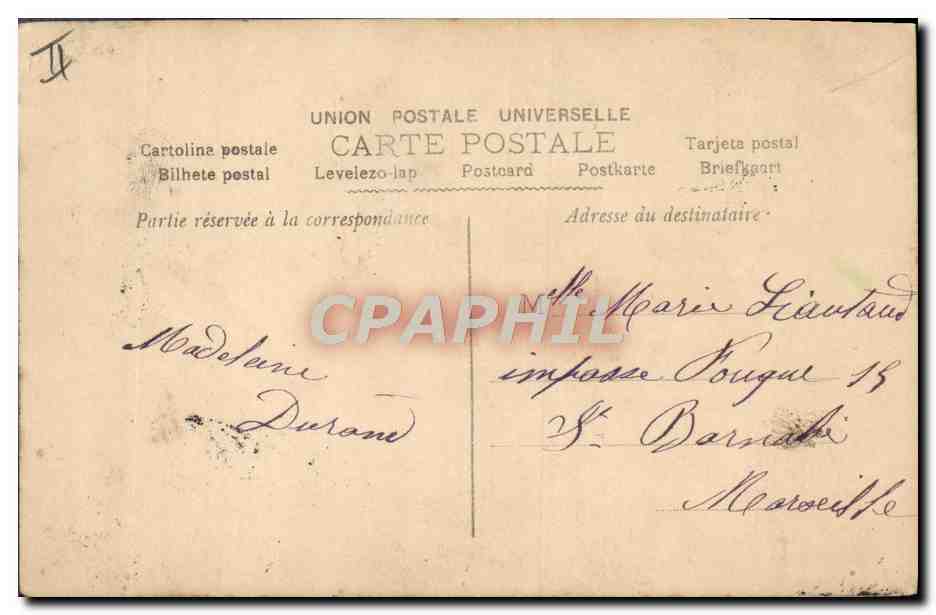 II
UNION POSTALE UNIVERSELLE
CARTE POSTALE
Cartolina postale
Tarjeta postal
Bilhete postal Levelezo-lap Postcard Postkarte Briefkaart
Partie réservée à la correspondance
Adresse du destinataire
CPAPHIL
Madeleine
Durand
Melle Marie Liautaud
impasse Fouque 15
St Barnabé
Marseille